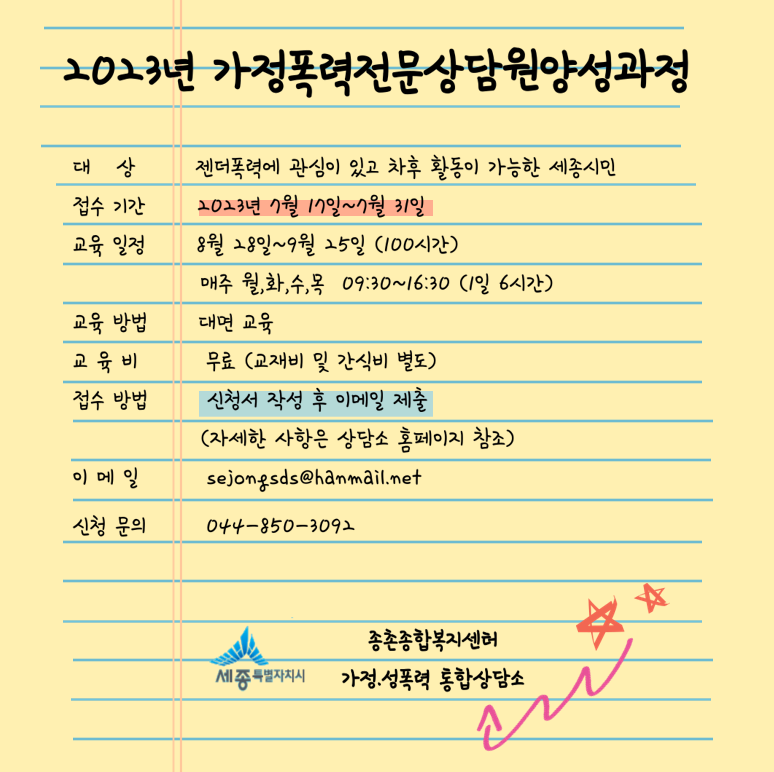 2023년 가정폭력전문상담원양성과정
대 상 젠더폭력에 관심이 있고 차후 활동이 가능한 세종시민
접수 기간 2023년 7월 17일~7월 31일
교육 일정 8월 28일~9월 25일 (100시간)
매주 월,화,수,목 09:30~16:30 (1일 6시간)
교육 방법 대면 교육
교 육 비 무료 (교재비 및 간식비 별도)
접수 방법 신청서 작성 후 이메일 제출
(자세한 사항은 상담소 홈페이지 참조)
이 메 일 sejongsds@hanmail.net
신청 문의 044-850-3092
종촌종합복지센터
세종특별자치시 가정.성폭력 통합상담소